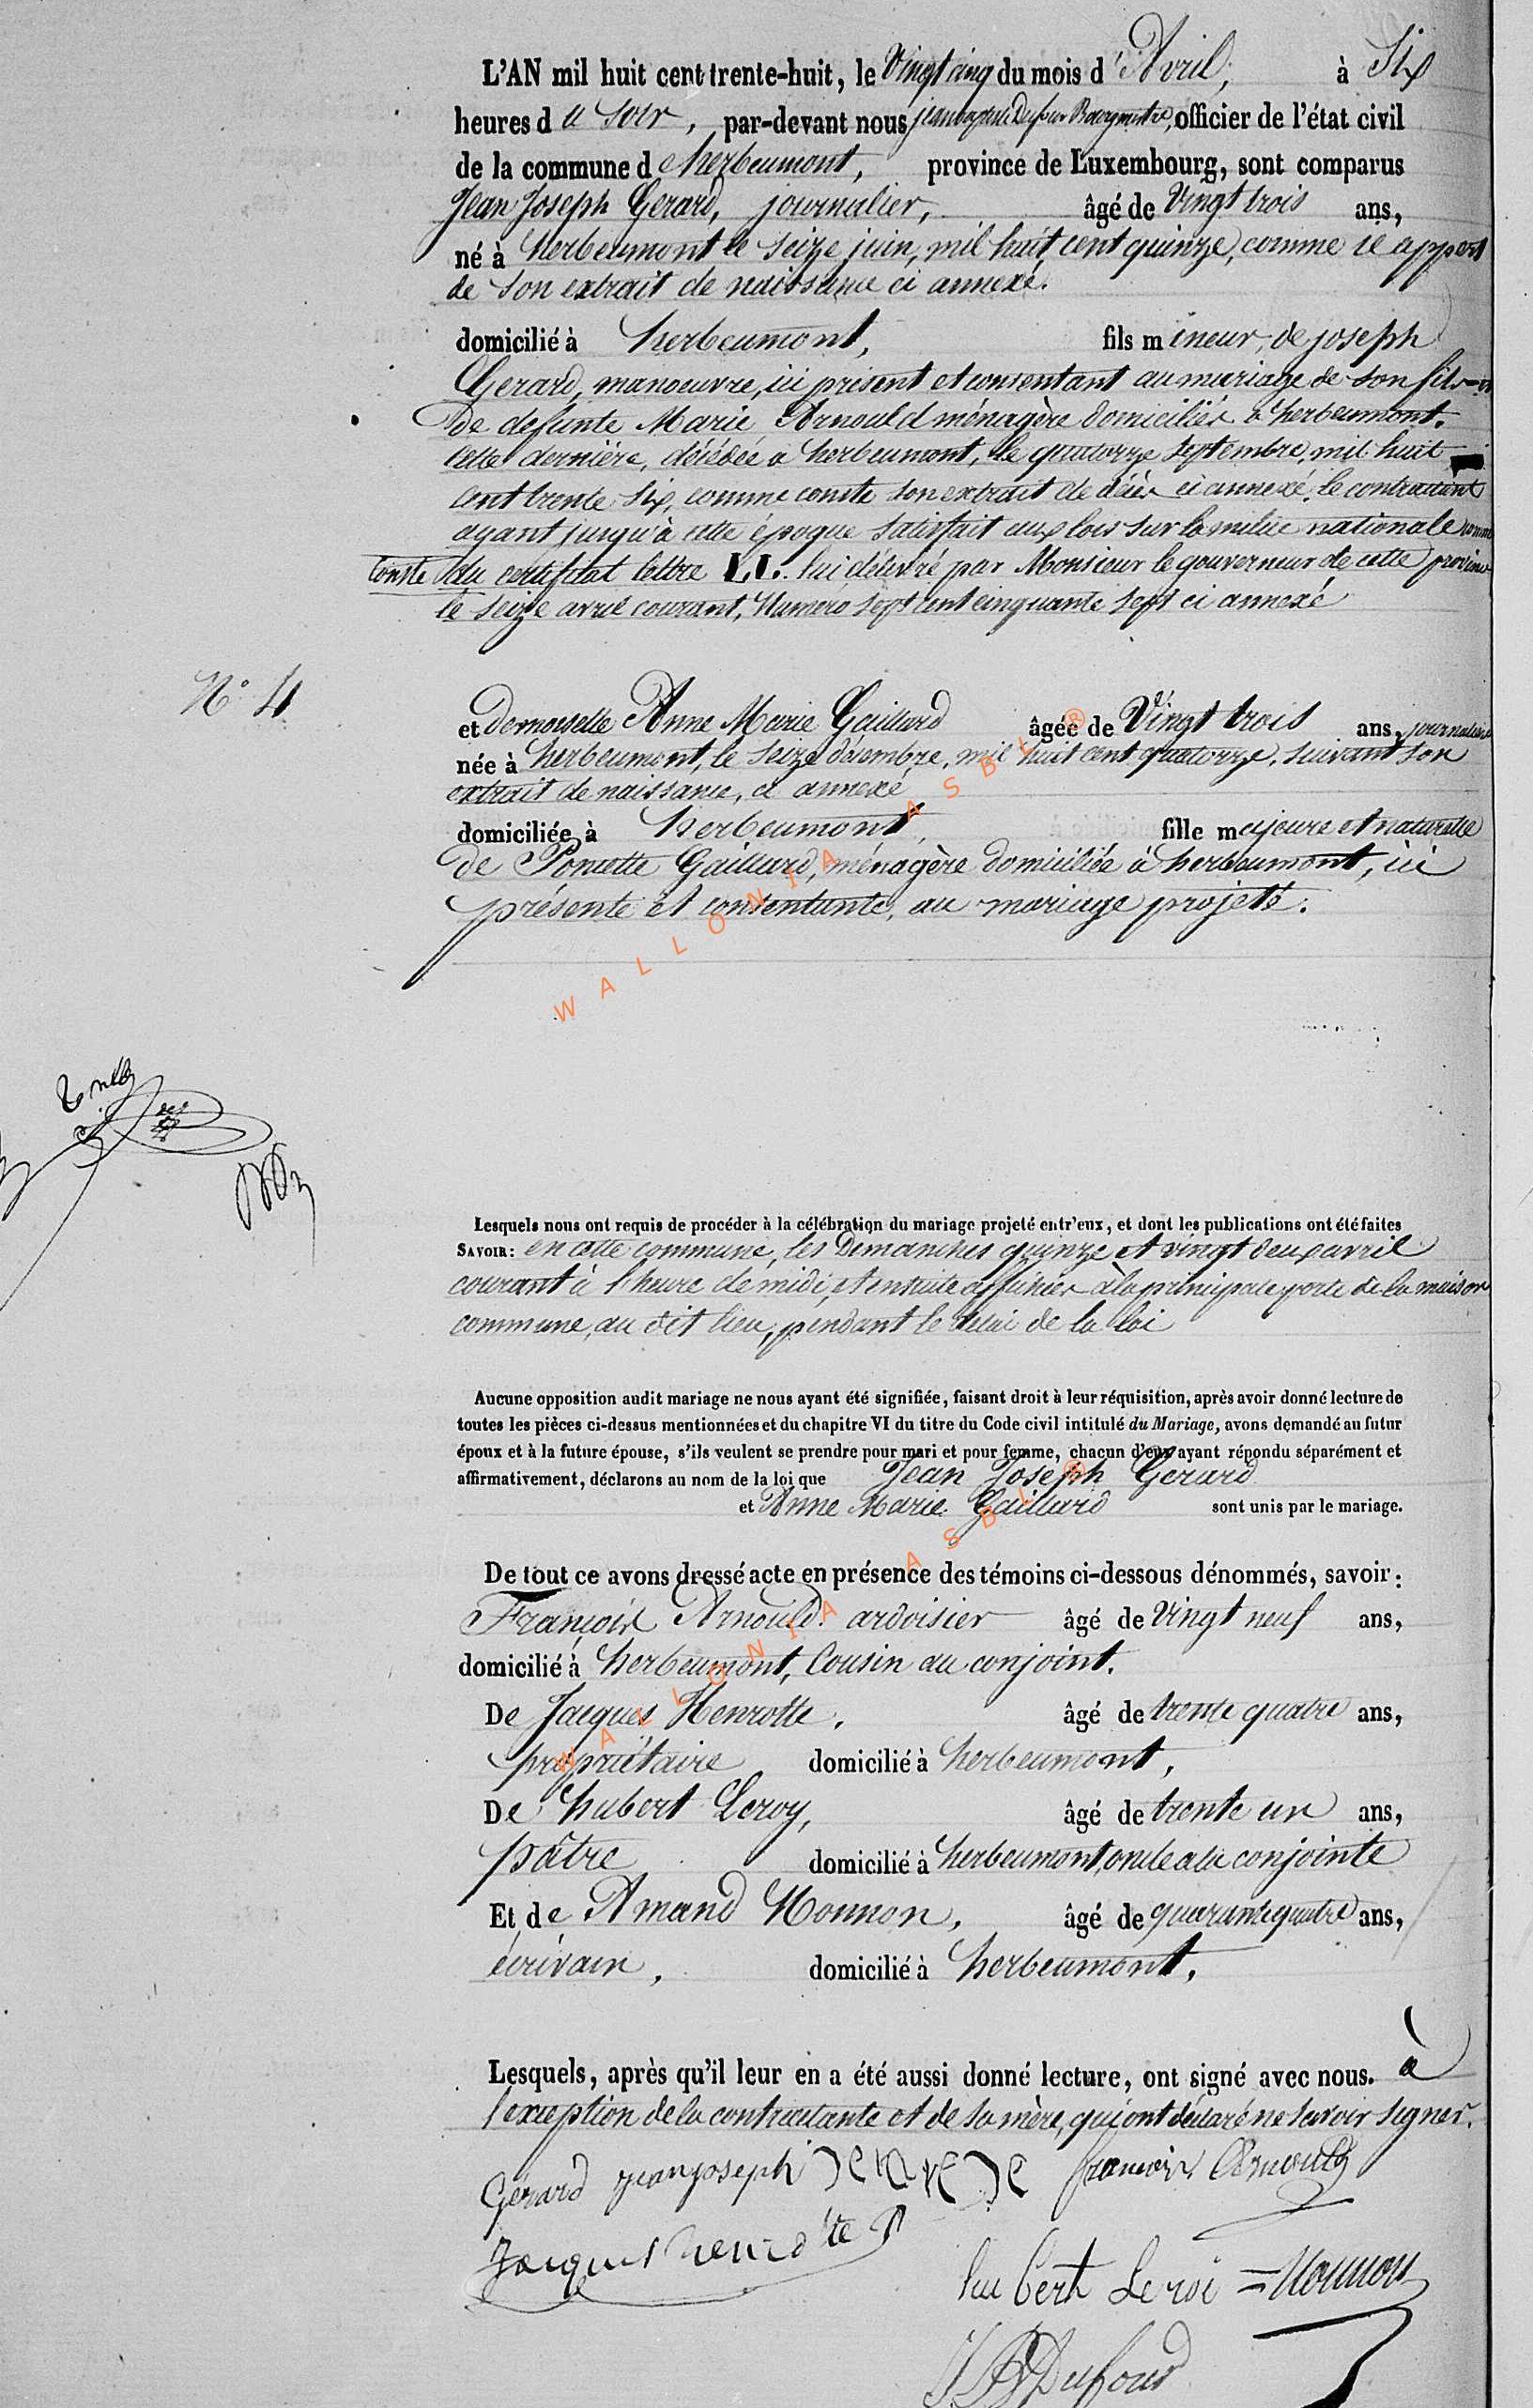 L'AN mil huit cent trente-huit, le Vingt cinq du mois d'Avril, à Six
heures du soir, par-devant nous jean baptiste Dufour Bourgmestre, officier de l'état civil
de la commune d'herbeumont, province de Luxembourg, sont comparus
Jean Joseph Gerard, journalier, âgé de Vingt trois ans,
né à herbeumont le seize juin, mil huit cent quinze, comme il appert
de son extrait de naissance ci annexé.
domicilié à herbeumont, fils mineur, de joseph
Gerard, manoeuvre, ici présent et consentant au mariage de son fils et
De defunte Marie Arnould ménagère domiciliés à herbeumont.
cette dernière, décédée à herbeumont, le quatorze septembre, mil huit
cent trente six, comme conste son extrait de décès ci annexé, le contractant
ayant jusqu'à cette époque satisfait aux lois sur la milice nationale comme
conste du certificat lettre LL. lui délivré par Monsieur le gouverneur de cette province
le seize avril courant, Numero sept cent cinquante sept ci annexé
N° 4
et demoiselle Anne Marie Gaillard âgée de Vingt trois ans, journalière
née à herbeumont, le seize décembre, mil huit cent quatorze, suivant son
extrait de naissance, ci annexé
domiciliée à herbeumont, fille majeure et naturelle
de Poncette Gaillard, ménagère domiciliée à herbeumont, ici
présente et consentante, au mariage projeté.
WALLONIA ASBL ®
Lesquels nous ont requis de procéder à la célébration du mariage projeté entr'eux, et dont les publications ont été faites
SAVOIR: en cette commune, les Dimanches quinze et vingt deux avril
courant à l'heure de midi, et ensuite affichées à la principale porte de la maison
commune, au dit lieu, pendant le délai de la loi
Aucune opposition audit mariage ne nous ayant été signifiée, faisant droit à leur réquisition, après avoir donné lecture de
toutes les pièces ci-dessus mentionnées et du chapitre VI du titre du Code civil intitulé du Mariage, avons demandé au futur
époux et à la future épouse, s'ils veulent se prendre pour mari et pour femme, chacun d'eux ayant répondu séparément et
affirmativement, déclarons au nom de la loi que Jean Joseph Gerard
et Anne Marie Gaillard sont unis par le mariage.
De tout ce avons dressé acte en présence des témoins ci-dessous dénommés, savoir:
François Arnould ardoisier âgé de Vingt neuf ans,
domicilié à herbeumont, Cousin au conjoint.
De Jacques Henrotte, âgé de trente quatre ans,
propriétaire domicilié à herbeumont,
De hubert Leroy, âgé de trente un ans,
pâtre domicilié à herbeumont, oncle a la conjointe
Et de Amand Monnon, âgé de quarante quatre ans,
écrivain, domicilié à herbeumont.
WALLONIA ASBL ®
Lesquels, après qu'il leur en a été aussi donné lecture, ont signé avec nous. à
l'exception de la contractante et de sa mère, qui ont déclaré ne savoir signer.
Gérard jean joseph francois Arnould
Jacques henrotte
hubert Leroi = Monnon
JB Dufour